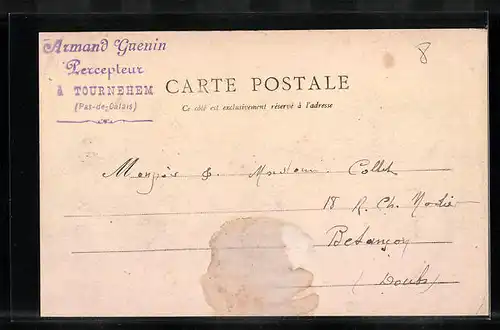 Armand Guenin
Percepteur
à TOURNEHEM
(Pas-de-Calais)
8
CARTE POSTALE
Ce côté est exclusivement réservé à l'adresse
Monsieur & Madame Collet
18 R. Ch. Nodier
Besançon
(Doubs)